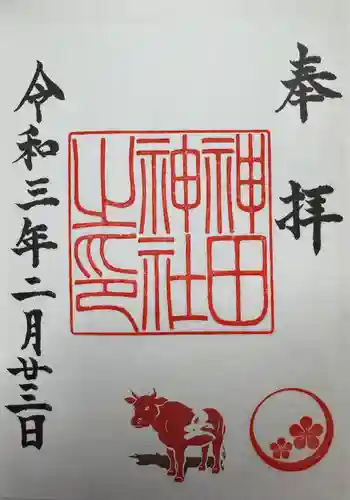 奉拝
神田
神社
之印
令和三年二月廿三日